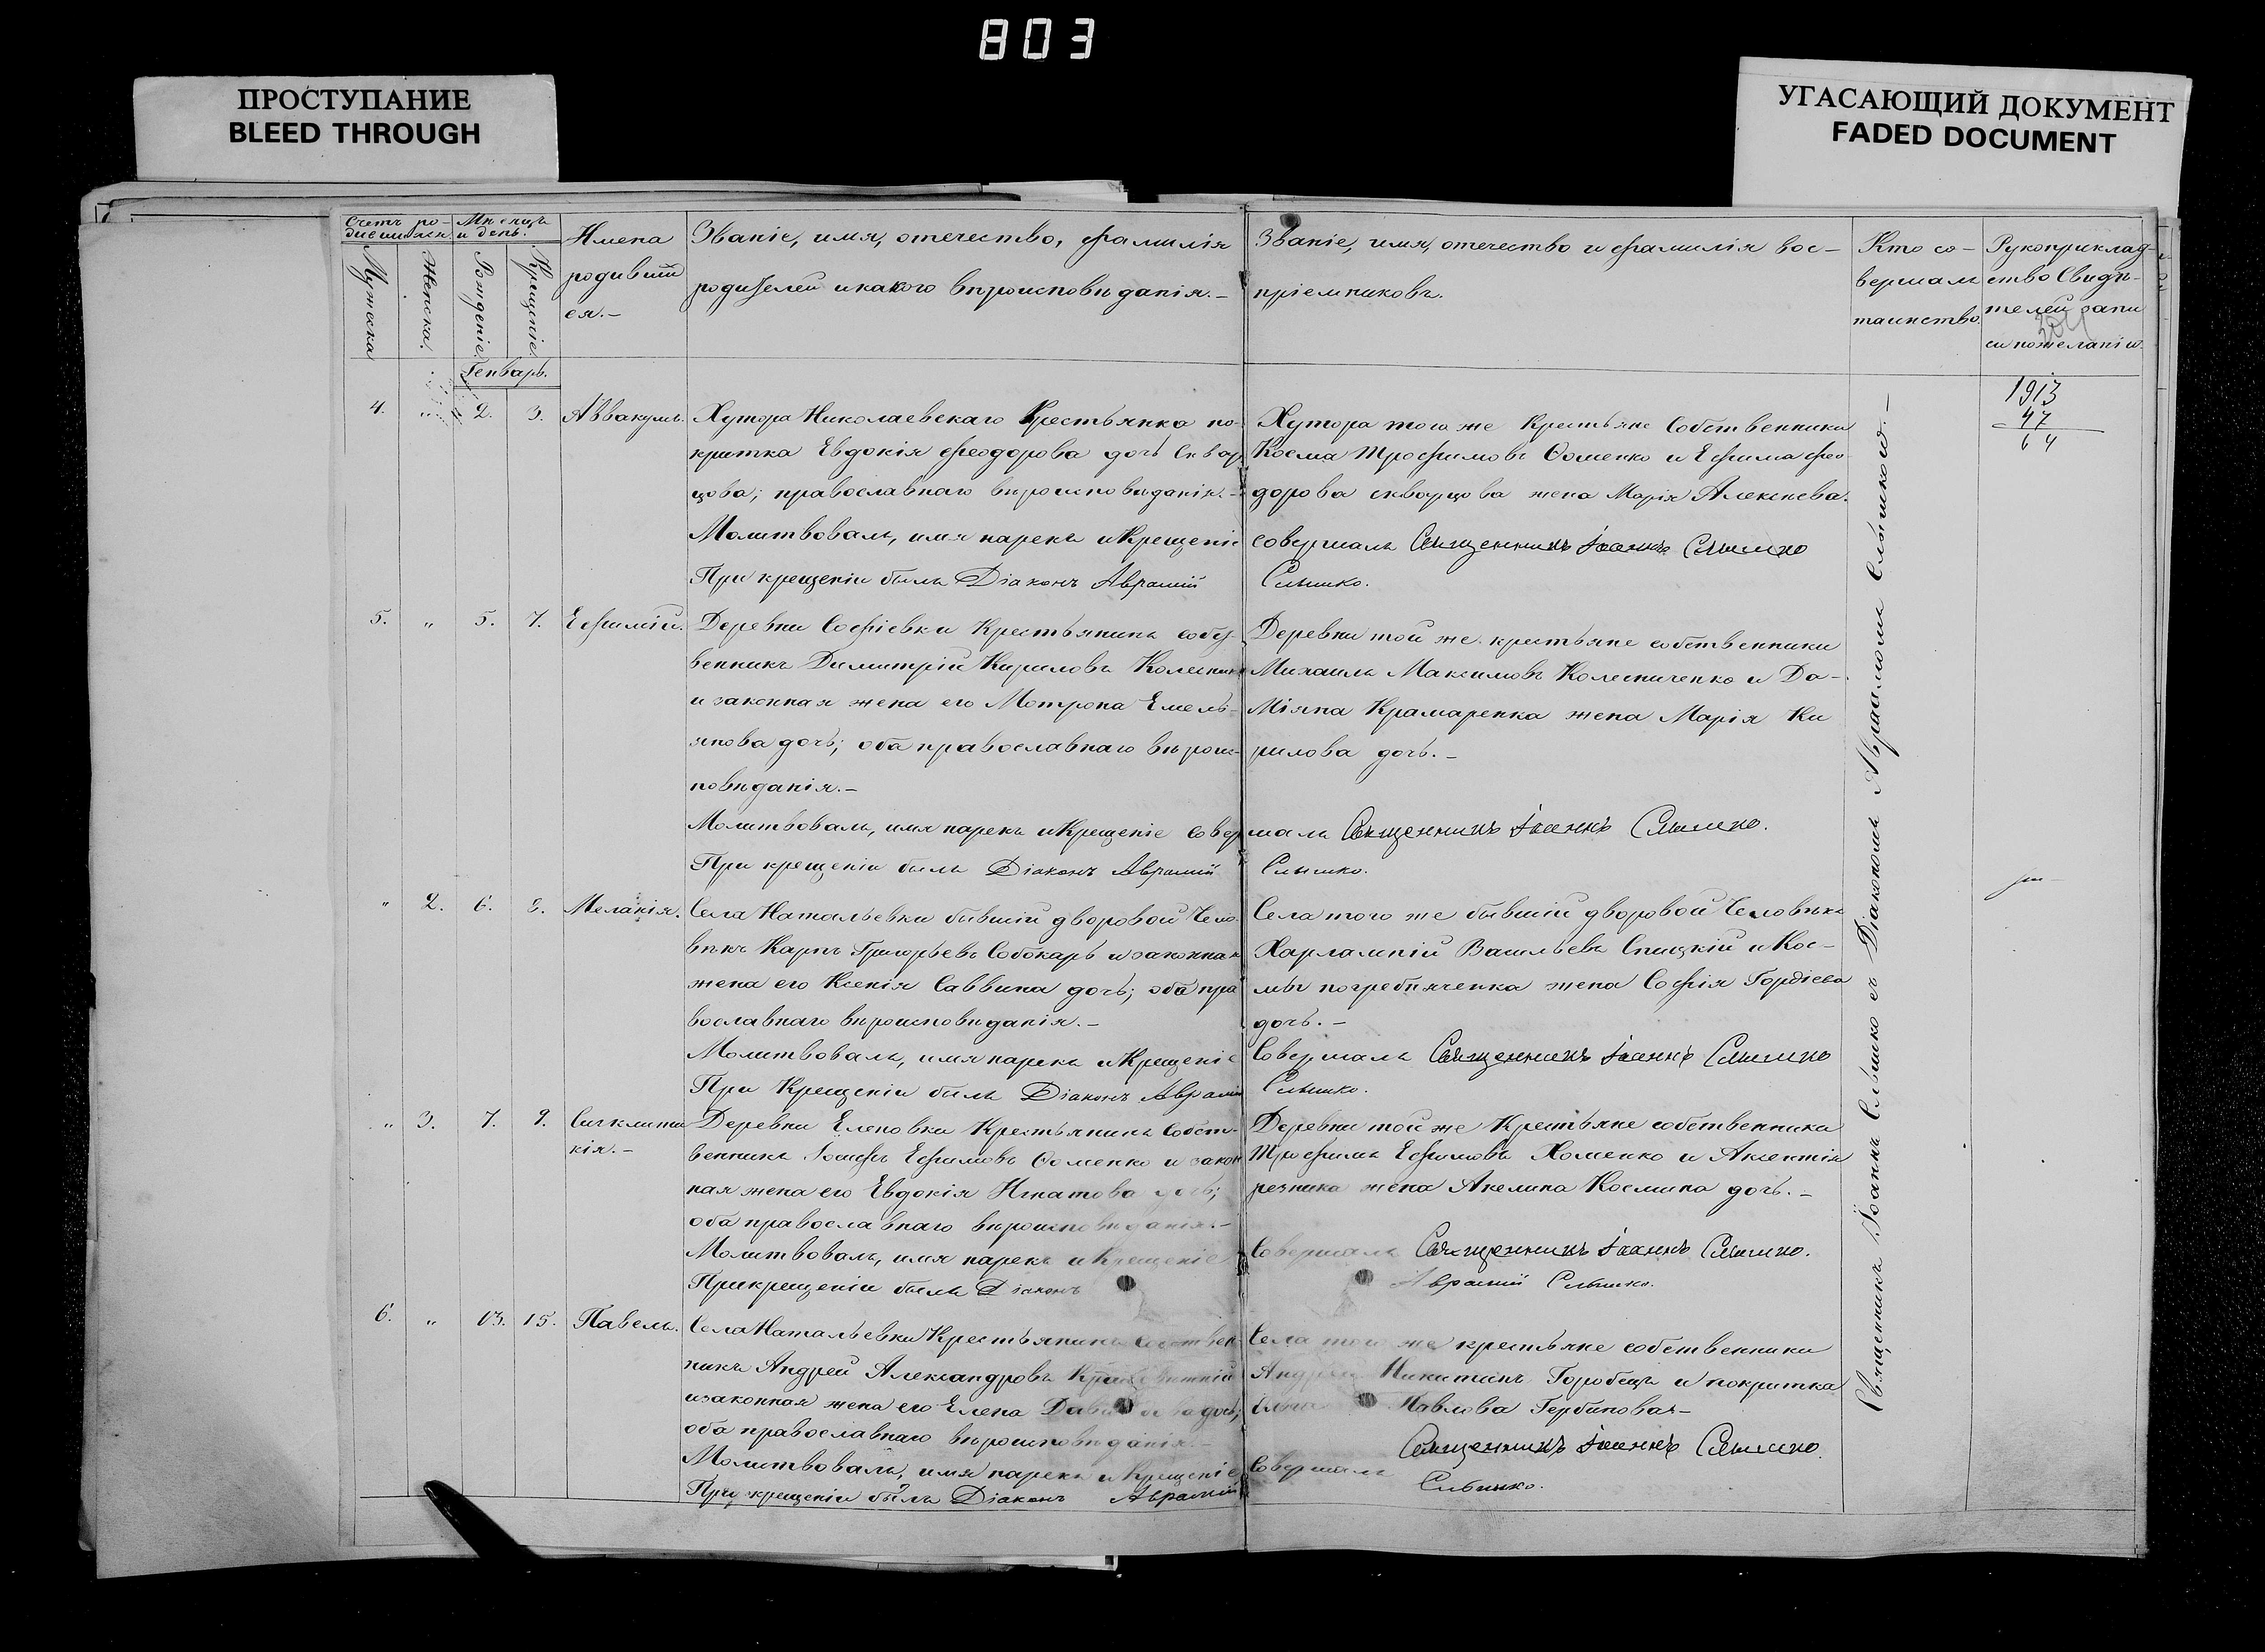 803
ПРОСТУПАНИЕ
BLEED THROUGH
УГАСАЮЩИЙ ДОКУМЕНТ
FADED DOCUMENT
Счетъ ро-
дившихся.
Мѣсяцъ
и день.
Мужска
Женска.
Рожденіе.
Крещеніе.
Имена
родивши
ся.-
Званіе, имя, отечество, фамилія
родителей и какого вѣроисповѣданія.-
Званіе, имя, отечество и фамилія вос-
пріемниковъ.
Кто со-
вершалъ
таинство.
Рукоприклад-
ство свидѣ-
телей запи
си по желанію.
Генварь.
4. „ 2. 3. Аввакумъ.
Хутора Николаевскаго Крестьянка по-
критка Евдокія Феодорова дочь Сквор
цова; православнаго вѣроисповѣданія.-
Молитвовалъ, имя нарекъ и Крещеніе
При крещеніи былъ Діаконъ Аврамій
Хутора того же Крестьяне Собственники
Косма Трофимовъ Фоменко и Ефима Фео
дорова скворцова жена Марія Алексѣева.
совершалъ Священникъ Іоаннъ Слышко
Слышко.
1913
47
64
5. „ 5. 7. Ефимій.
Деревни Софіевки Крестьянинъ собст
венникъ Димитрій Кириловъ Колесник
и законная жена его Мотрона Емель-
янова дочь; оба православнаго вѣроис-
повѣданія.-
Молитвовалъ, имя нарекъ и Крещеніе совер
При крещеніи былъ Діаконъ Аврамій
Деревни той же крестьяне собственники
Михаилъ Максимовъ Колесниченко и Да-
міяна Крамаренка жена Марія Ки
рилова дочь.-
шалъ Священникъ Іоаннъ Слышко.
Слышко.
„ 2. 6. 8. Меланія.
Села Натальевки бывшій дворовой Чело-
вѣкъ Карпъ Григорьевъ Собокарь и законная
жена его Ксенія Саввина дочь; оба пра
вославнаго вѣроисповѣданія.-
Молитвовалъ, имя нарекъ и Крещеніе
При Крещеніи былъ Діаконъ Аврамій
Села того же бывшій дворовой Человѣкъ
Харлампій Васильевъ Спицкій и Кос-
мы погребняченка жена Софія Гордіева
дочь.-
Совершалъ Священникъ Іоаннъ Слышко
Слышко.
„ 3. 7. 9. Сигклити
кія.-
Деревни Еленовки Крестьянинъ Собст-
венникъ Іосифъ Ефимовъ Фоменко и закон
ная жена его Евдокія Игнатова дочь;
оба православнаго вѣроисповѣданія.-
Молитвовалъ, имя нарекъ и Крещеніе
При крещеніи былъ Діаконъ
Деревни той же Крестьяне собственники
Трофимъ Ефимовъ Хоменко и Аксентія
резника жена Акелина Космина дочь.-
Совершалъ Священникъ Іоаннъ Слышко.
Аврамій Слышко.
6. „ 13. 15. Павелъ.
Села Натальевки Крестьянинъ Собствен
никъ Андрей Александровъ
и законная жена его Елена дочь;
оба православнаго вѣроисповѣданія.-
Молитвовалъ, имя нарекъ и Крещеніе
При крещеніи былъ Діаконъ Аврамій
Села той же крестьяне собственники
Андрей Никитинъ Горобецъ и покритка
Павлова Гербиновая-
Совершалъ Священникъ Іоаннъ Слышко.
Слышко.
Священникъ Іоаннъ Слышко съ Діакономъ Авраміемъ Слышкою.-